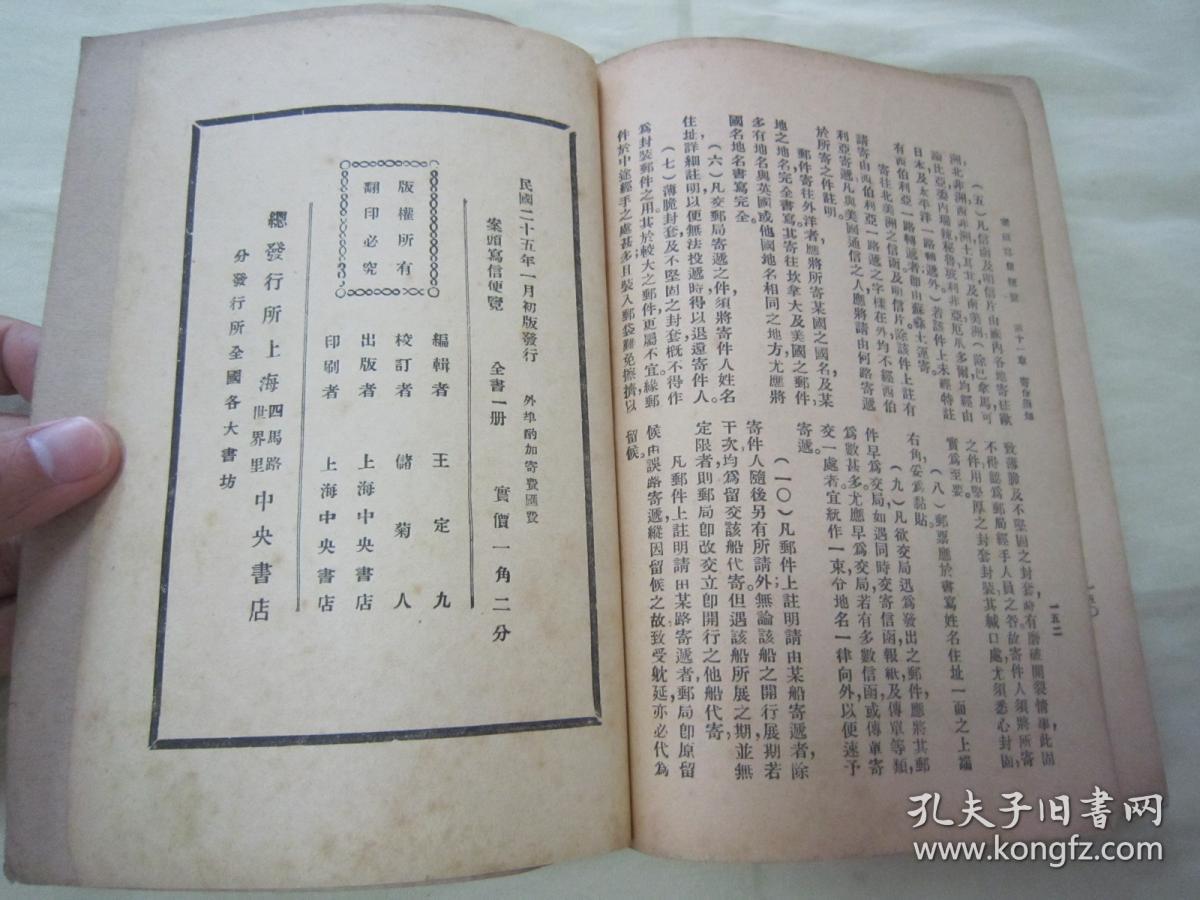 案頭寫信便覽　第十一章　寄件須知
一五二
（五）凡信函及明信片由國內各地寄往歐
洲北非洲西非洲土耳其北及南美洲（除巴拿馬可
論比亞委內瑞辣秘魯玻利非亞厄瓜多爾均經由
日本及太平洋一路轉遞外）若該件上未經特註
有西伯利亞一路轉遞者卽由蘇彝士運寄。
寄往北美洲之信函及明信片除該件上註有
請寄由西伯利亞一路遞之字樣在外均不經西伯
利亞寄遞凡與美國通信之人應將請由何路寄遞
於所寄之件註明。
郵件寄往外洋者應將所寄某國之國名及某
地之地名完全書寫其寄往坎拿大及美國之郵件
多有地名與英國或他國地名相同之地方尤應將
國名地名書寫完全。
（六）凡交郵局寄遞之件須將寄件人姓名
住址詳細註明以便無法投遞時得以退還寄件人。
（七）薄脆封套及不堅固之封套槪不得作
爲封裝郵件之用其於較大之郵件更屬不宜緣郵
件於中途經手之處甚多且裝入郵袋難免擦擠以
致薄脆及不堅固之封套時有磨破開裂情事此固
不得認爲郵局經手人員之咎故寄件人須將所寄
之件用堅厚之封套封裝其緘口處尤須悉心封固
實爲至要
（八）郵票應於書寫姓名住址一面之上端
右角妥爲黏貼。
（九）凡欲交局迅爲發出之郵件應將其郵
件早爲交局如遇同時交寄信函報紙及傳單等類，
爲數甚多尤應早爲交局若有多數信函或傳單寄
交一處者宜統作一束分地名一律向外以便速予
寄遞。
（一〇）凡郵件上註明請由某船寄遞者除
寄件人隨後另有所請外無論該船之開行展期若
干次均爲留交該船代寄但遇該船所展之期並無
定限者則郵局卽改交立卽開行之他船代寄
凡郵件上註明請由某路寄遞者郵局卽原留
候由誤路寄遞縱因留候之故致受躭延亦必代爲
留候。
民國二十五年一月初版發行　外埠酌加寄費匯費
案頭寫信便覽　全書一册　實價一角二分
版權所有
翻印必究
編輯者　王定九
校訂者　儲菊人
出版者　上海中央書店
印刷者　上海中央書店
總發行所上海四馬路世界里中央書店
分發行所全國各大書坊
一五〇
孔夫子旧书网
www.kongfz.com